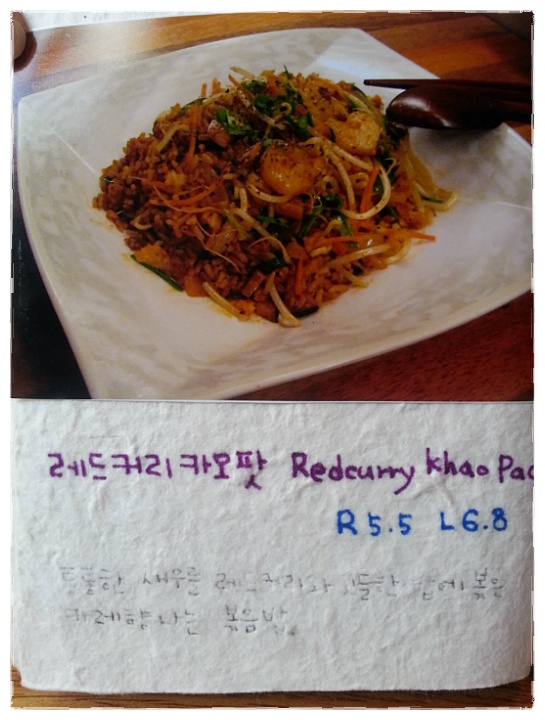 레드커리카오팟 Redcurry Khao Pad
R 5.5 L 6.8
통통한 새우를 레드커리와 밥에 볶은
카레향나는 볶음밥.